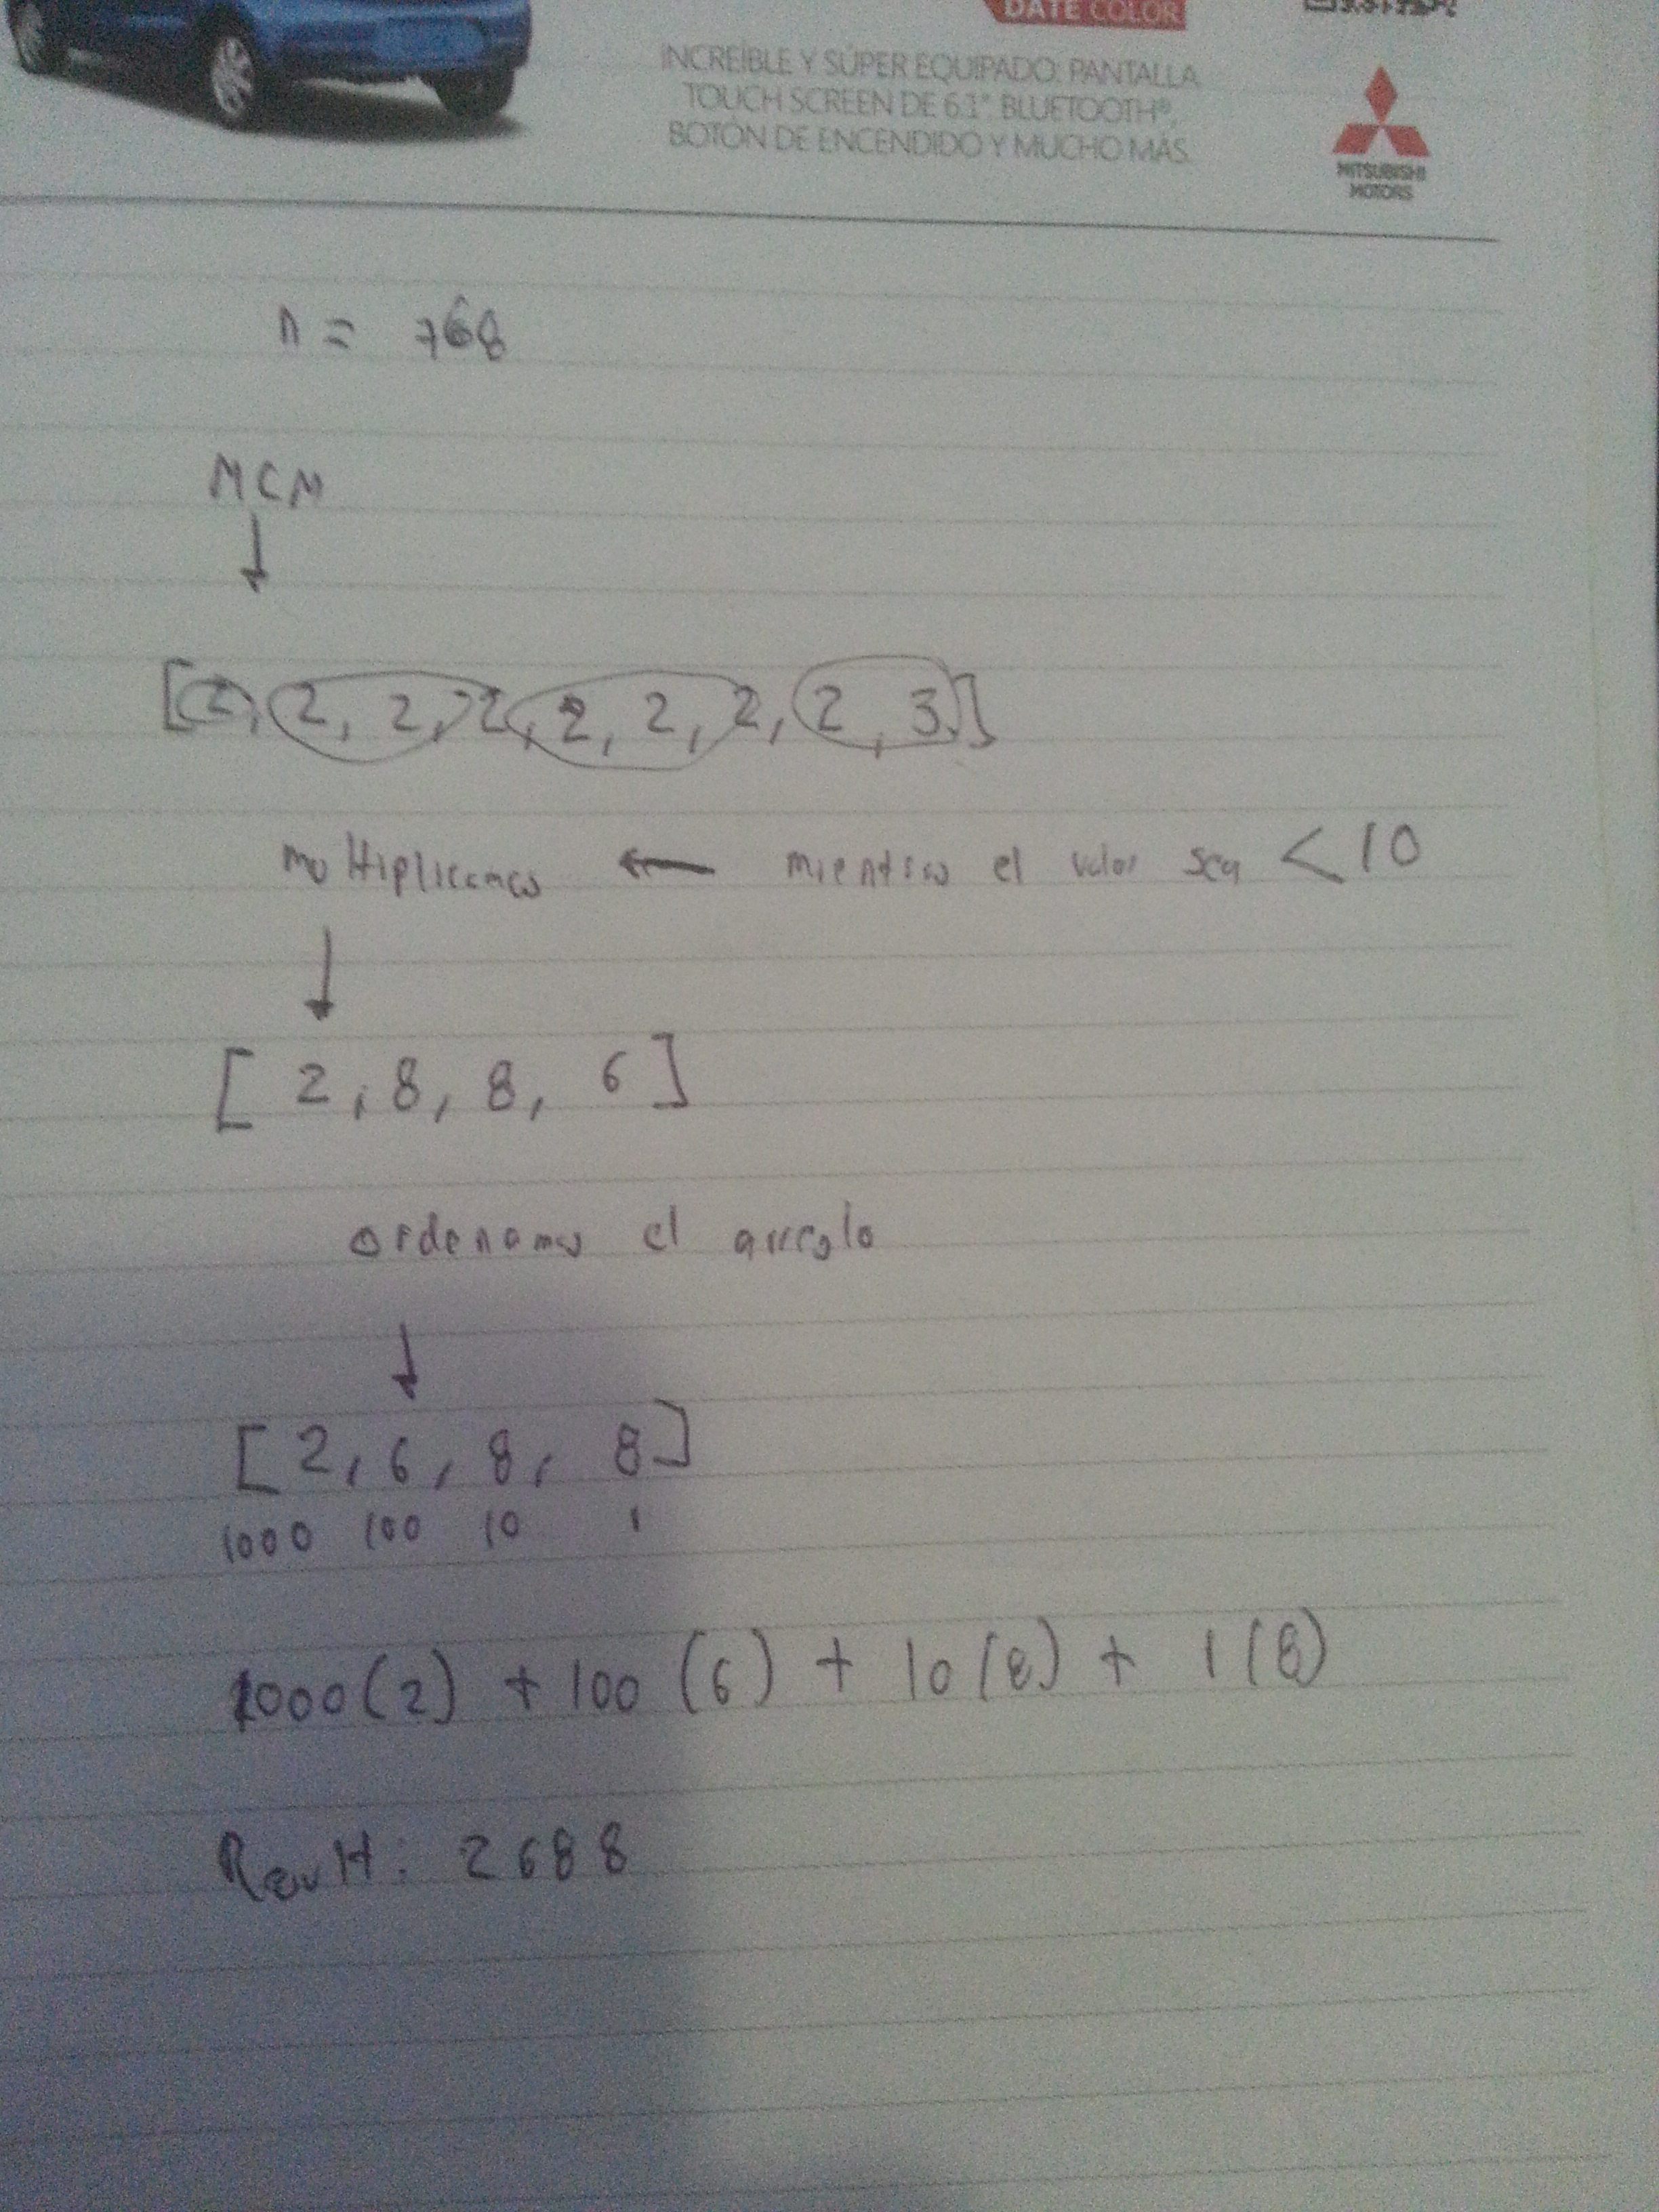 DATE COLOR
INCREÍBLE Y SÚPER EQUIPADO: PANTALLA
TOUCH SCREEN DE 6.1", BLUETOOTH®,
BOTÓN DE ENCENDIDO Y MUCHO MÁS.
MITSUBISHI
MOTORS
n = 768
MCM
[2, 2, 2, 2, 2, 2, 2, 2, 3]
multiplicamos ← mientras el valor sea < 10
[ 2, 8, 8, 6 ]
ordenamos el arreglo
[ 2, 6, 8, 8 ]
1000 100 10 1
1000(2) + 100 (6) + 10(8) + 1(8)
2688